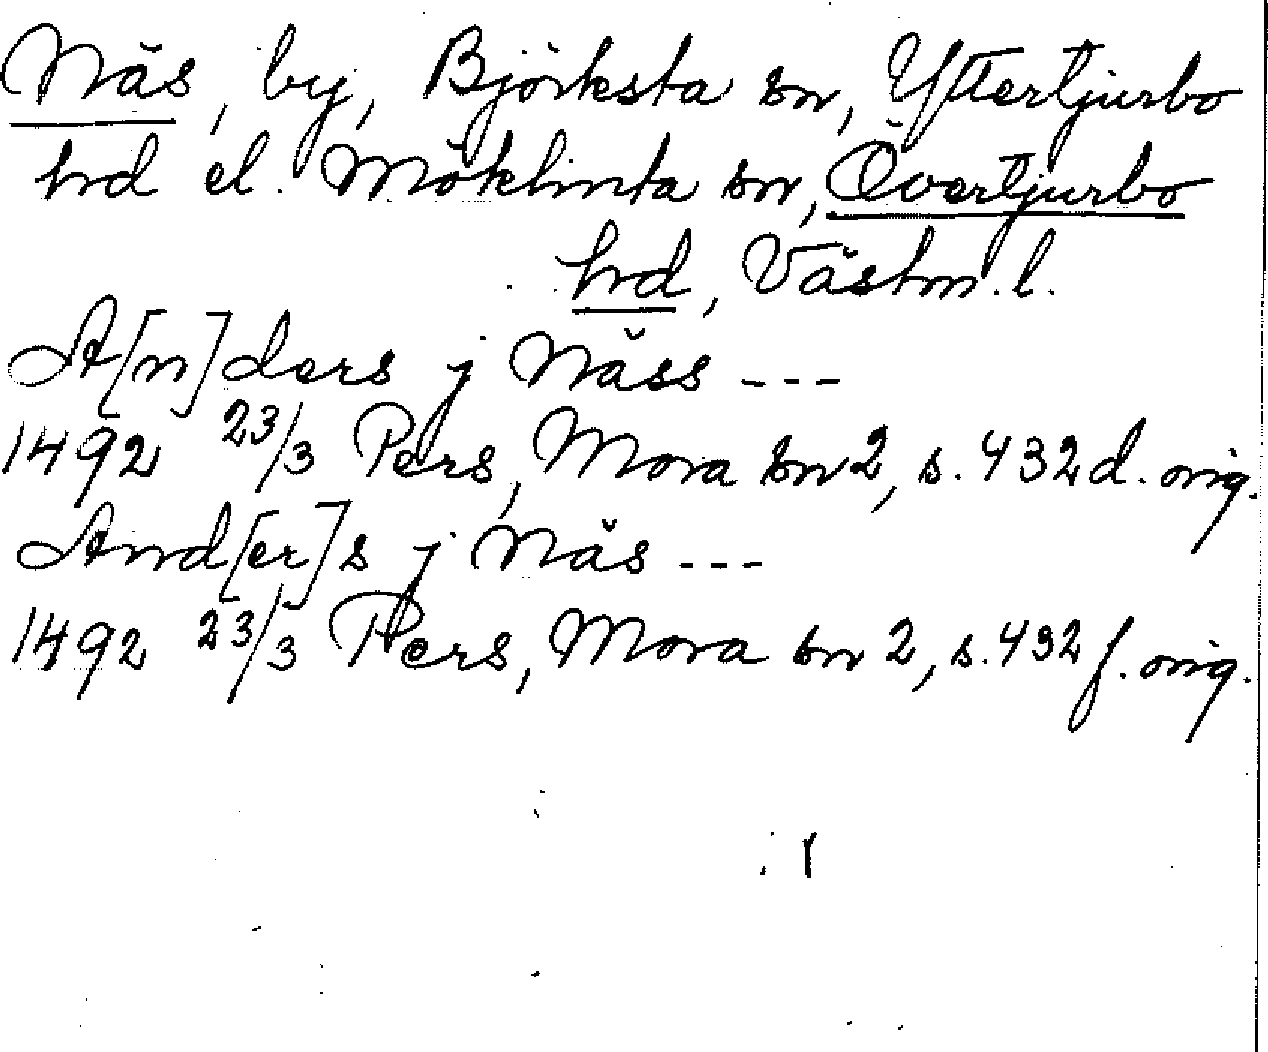 Näs, by, Björksta sn, Yttertjurbo
hrd el. Möklinta sn, Övertjurbo
hrd, Västm. l.
A[n]ders j Näss ---
1492 23/3 Pers, Mora sn 2, s. 432 d. orig.
And[er]s j Näs ---
1492 23/3 Pers, Mora sn 2, s. 432 f. orig.